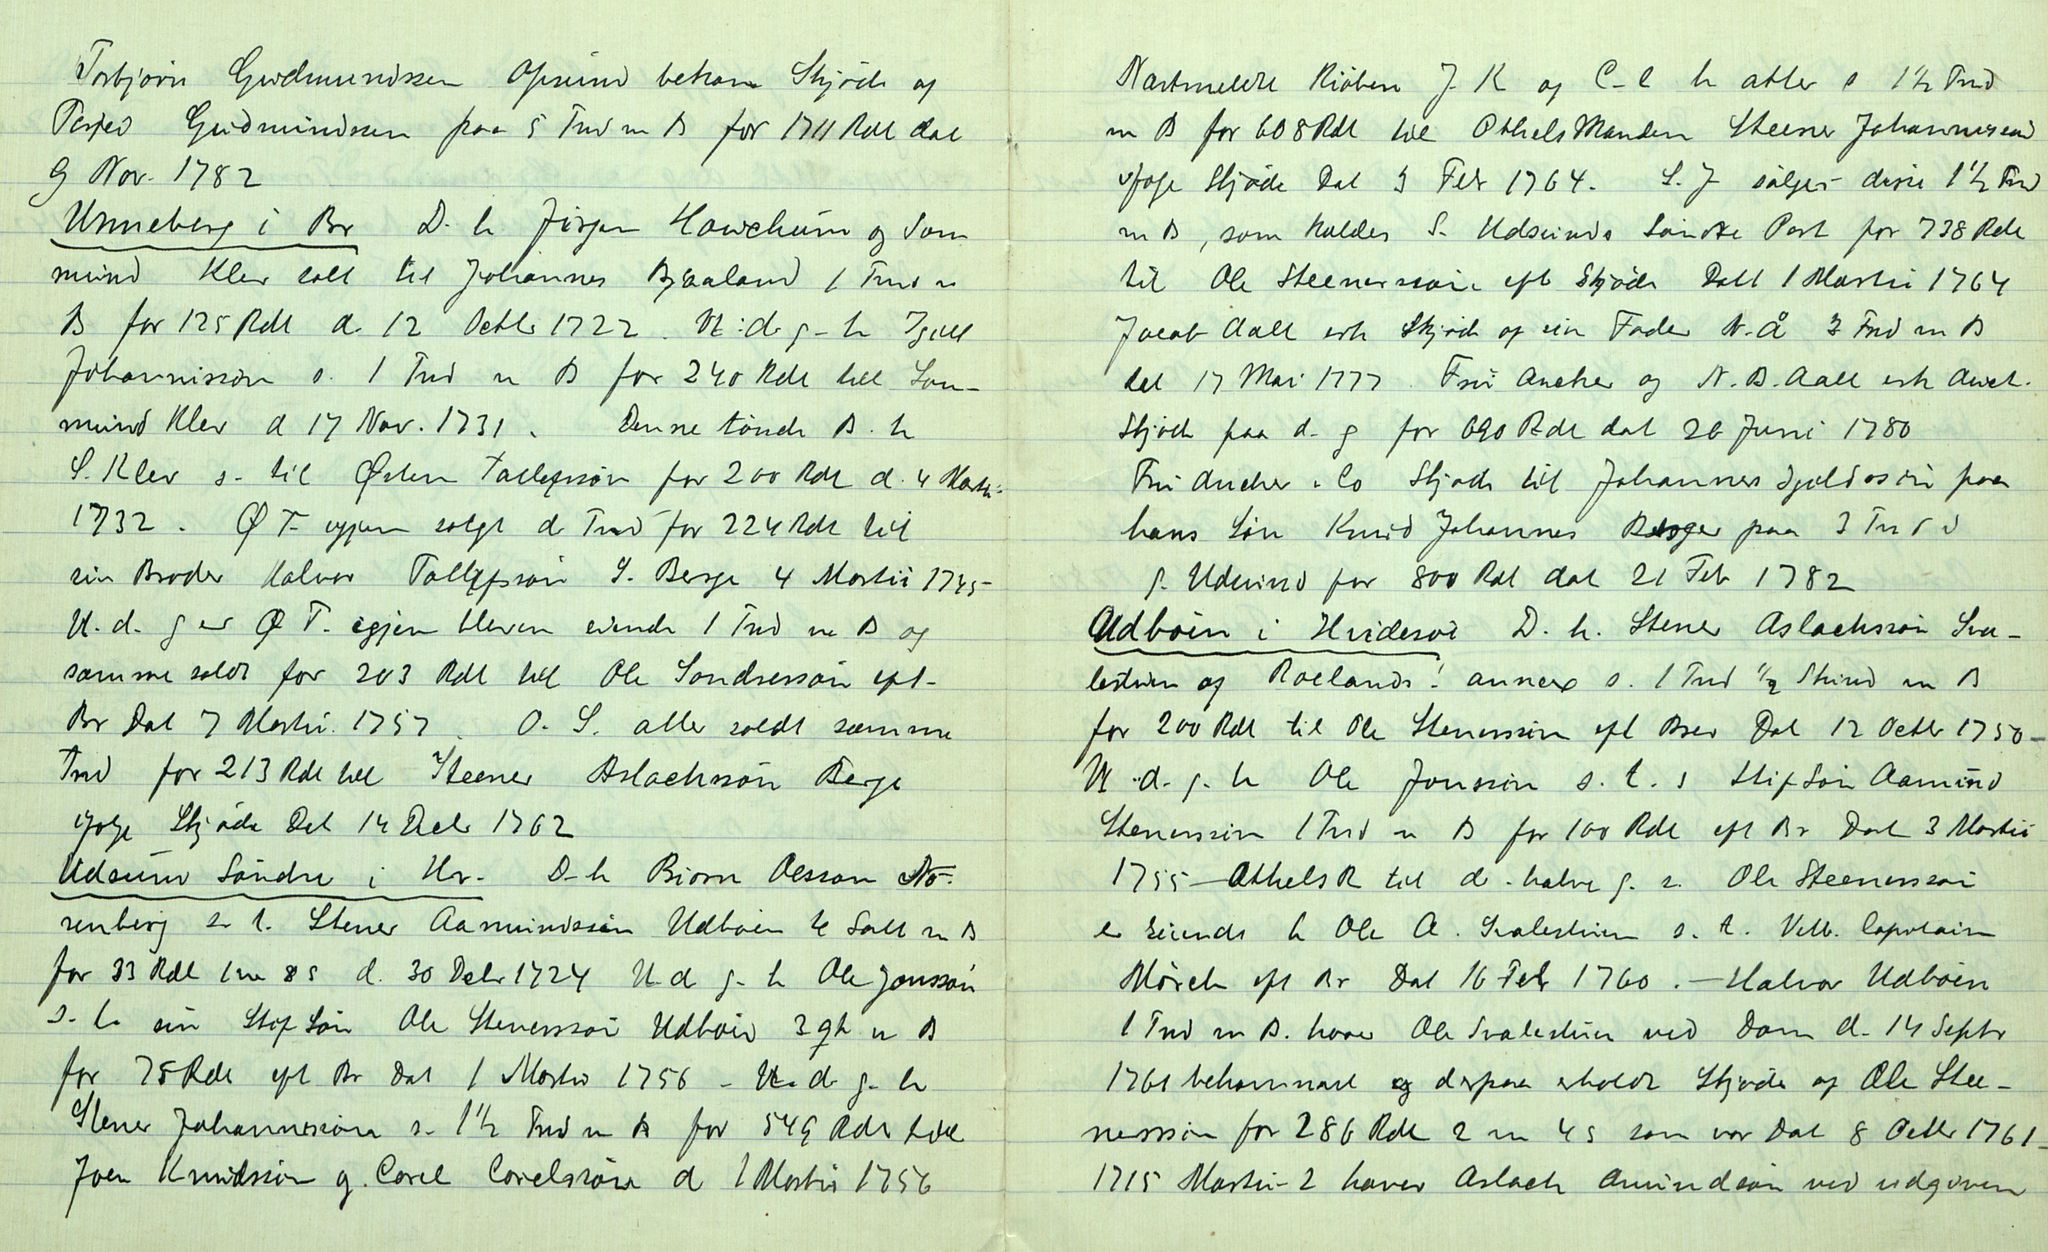 Torbjørn Gudmundssen Opsund bekom Skjøde af
Gudmundssen paa 5 Tnd m B for 1711 Rdl dat
9 Nov. 1782
Unneberg i Br D. h Jørgen Howchum og Son
mund Klev solt til Johannes Bjaaland 1 Tnd m
B for 125 Rdl d. 12 Octbr 1722. U: d. g- h
Johannissøn s. 1 Tnd m B for 240 Rdl till Son-
mund Klev d 17 Nov. 1731. Denne tønde B. h
S. Klev s. til Østen Tallefssøn for 200 Rdl d. 4 Martii
1732. Ø T- igjen solgt d. Tnd for 224 Rdl til
sin Broder Halvor Tallefssøn S. Berge 4 Martii 1745-
U. d. g er Ø T. igjen bleven eiende 1 Tnd m B og
samme soldt for 203 Rdl till Ole Sondressøn eft-
Br Dat 7 Martii. 1757. O. S. atter soldt samme
Tnd for 213 Rdl till Steener Aslachsøn Berge
ifølge Skjøde Dat 14 Decbr 1762
Udsund Søndre i Hv- D- h Biorn Olsson No-
renberg s. t. Stener Aamundssøn Udbøen
for 33 Rdl 1 m 8 s d. 30 Decbr 1724 U. d g- h Ole Jonssøn
s- t. sin Stif Søn Ole Stenerssøn Udbøen 3 qt m B
for 75 Rdl eft Br Dat 1 Martii 1756 - U. d- g- h
Stener Johannessøn s- 1½ Tnd m B for 549 Rdl till
Joen Knudssøn og Carel Carelssøn d 1 Martii 1756
Næstmeldte Kiøbere J- K og C- C h atter s 1½ Tnd
m B for 608 Rdl til OthelsManden Steener Johannessen
ifølge Skjøde Dat 3 Febr 1764. S. J sælger disse 1½ Tnd
m B, som kaldes S. Udsunds Søndre Part for 738 Rdl
til Ole Steenerssøn eft Skjøde Dat 1 Martii 1764
Jacob Aall erh Skjøde af sin Fader N. Å 3 Tnd m B
dat 17 Mai 1777. Fru Ancher og N. B. Aall erh Auct.
Skjøde paa d. g for 690 Rdl dat 26 Juni 1780
Fru Ancher & Co Skjøde til Johannes paa
hans Søn Knud Johannes Berge paa 3 Tnd i
g. Udsund for 800 Rdl dat 21 Feb 1782
Udbøen i Hvidesøe D. h. Stener Aslachssøn Sva-
lestuen og Roelands! annex s. 1 Tnd ½ Skind m B
for 200 Rdl til Ole Stenerssøn eft Brev Dat 12 Octbr 1750-
U. d. g. h Ole Jonssøn s. t. s Stif Søn Aamund
Stenerssøn 1 Tnd m B for 100 Rdl eft Br Dat 3 Martii
1755 - Othels R til d. halve g. s. Ole Steenerssøn
er Eiende h Ole A. Svalestuen s. t. Velb. Capitain
Mørch eft Br Dat 16 Febr 1760. - Halvor Udbøen
1 Tnd m B. haver Ole Svalestuen ved Dom d. 14 Septbr
1761 bekommet og derpaa erholdt Skjøde af Ole Stee-
nerssøn for 286 Rdl 2 m 4 s som var Dat 8 Octbr 1761-
1715 Martii 2 haver Aslach Amundsøn ved udgiven